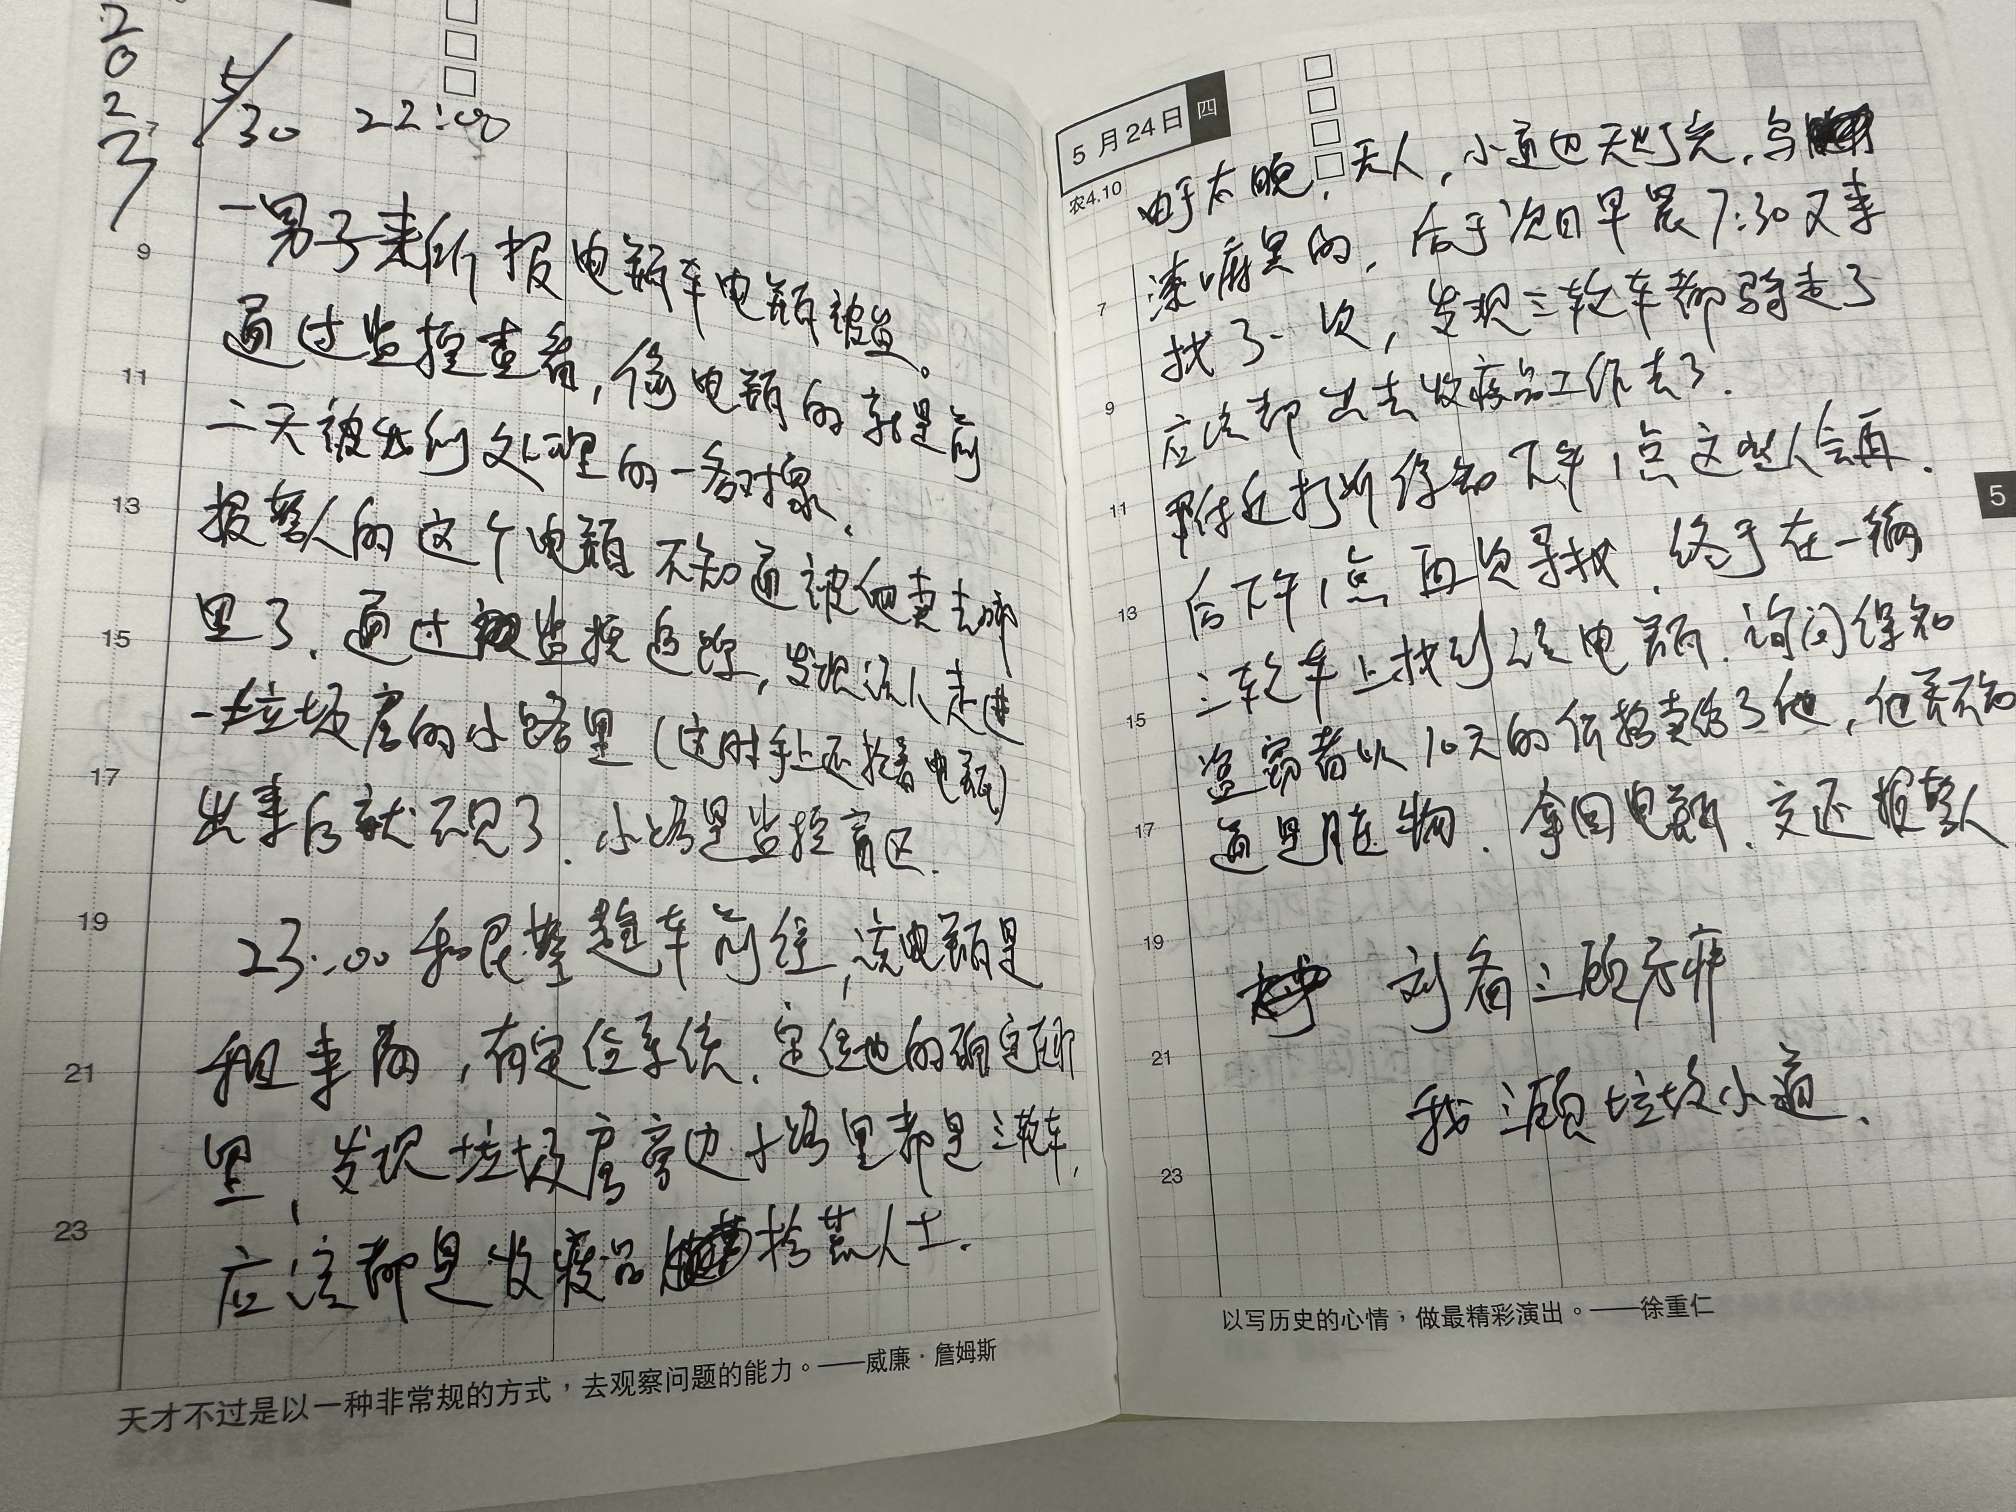 2023
5/30 22:00
7
9
11
13
15
17
19
21
23
一男子来所报电瓶车电瓶被盗。
通过监控查看，偷电瓶的就是前
二天被我们处理的一名对象.
报警人的这个电瓶不知道被他卖去哪
里了. 通过监控追踪, 发现该人走进
一垃圾房的小路里（这时手上还拎着电瓶）
出来后就不见了. 小路是监控盲区.
23:00 和民警赶车前往, 该电瓶是
租来的, 有定位系统. 定位他的确定在那
里, 发现垃圾房旁边小路里都是三轮车,
应该都是收废品拾荒人士.
天才不过是以一种非常规的方式，去观察问题的能力。——威廉·詹姆斯
5月24日 四
农4.10
由于太晚, 无人, 小道也无灯光, 乌
漆嘛黑的, 后于次日早晨7:30又来
找了一次, 发现三轮车都骑走了
应该都出去收废品工作去了.
附近打听得知下午1点这些人会再.
后下午1点再次寻找. 终于在一辆
三轮车上找到该电瓶. 询问得知
盗窃者以10元的价格卖给了他, 他表示不知
道是脏物. 拿回电瓶. 交还报警人
刘备三顾茅庐
我三顾垃圾小道.
7
9
11
13
15
17
19
21
23
5
以写历史的心情，做最精彩演出。——徐重仁